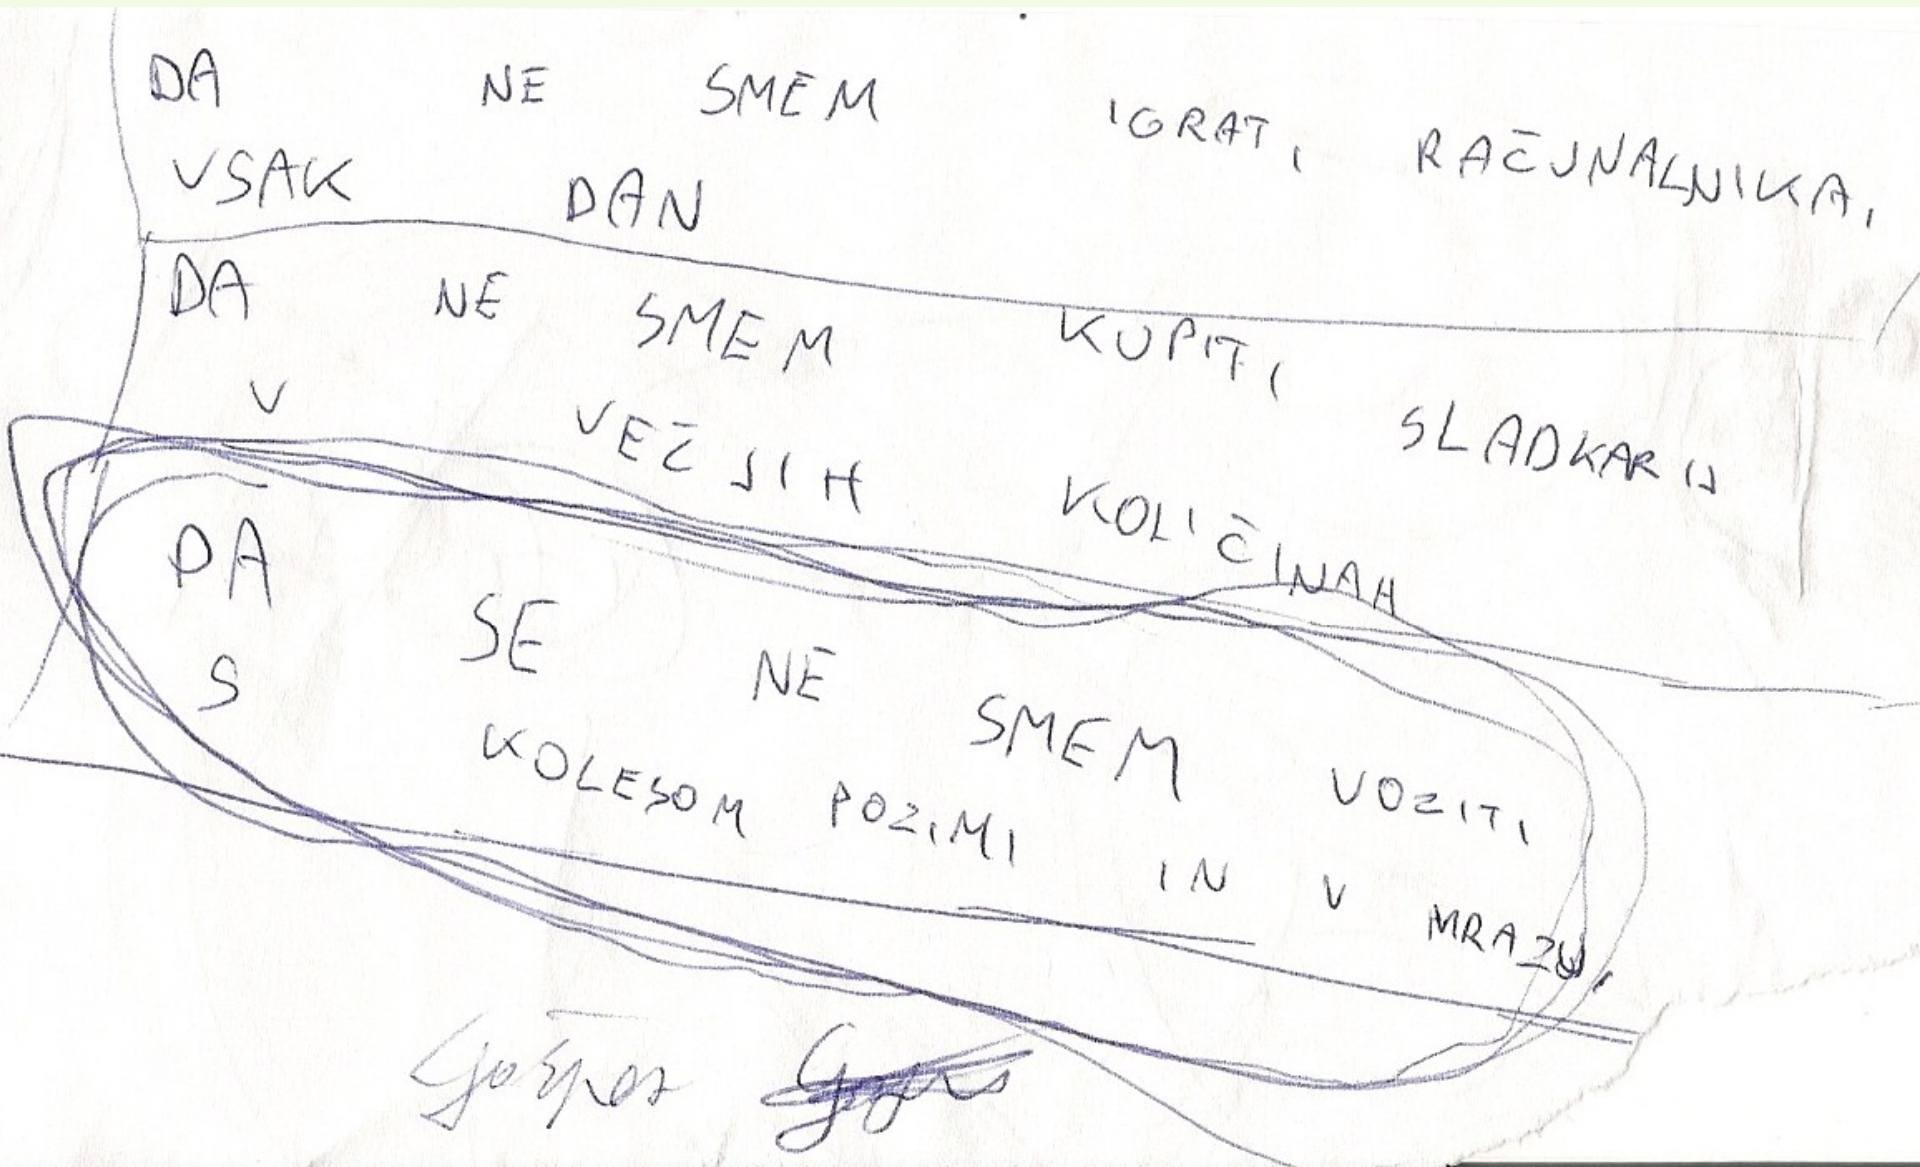 DA NE SMEM IGRATI RAČUNALNIKA,
VSAK DAN
DA NE SMEM KUPITI SLADKARIJ
V VEČJIH KOLIČINAH
DA SE NE SMEM VOZITI
S KOLESOM POZIMI IN V MRAZU.
Gašper